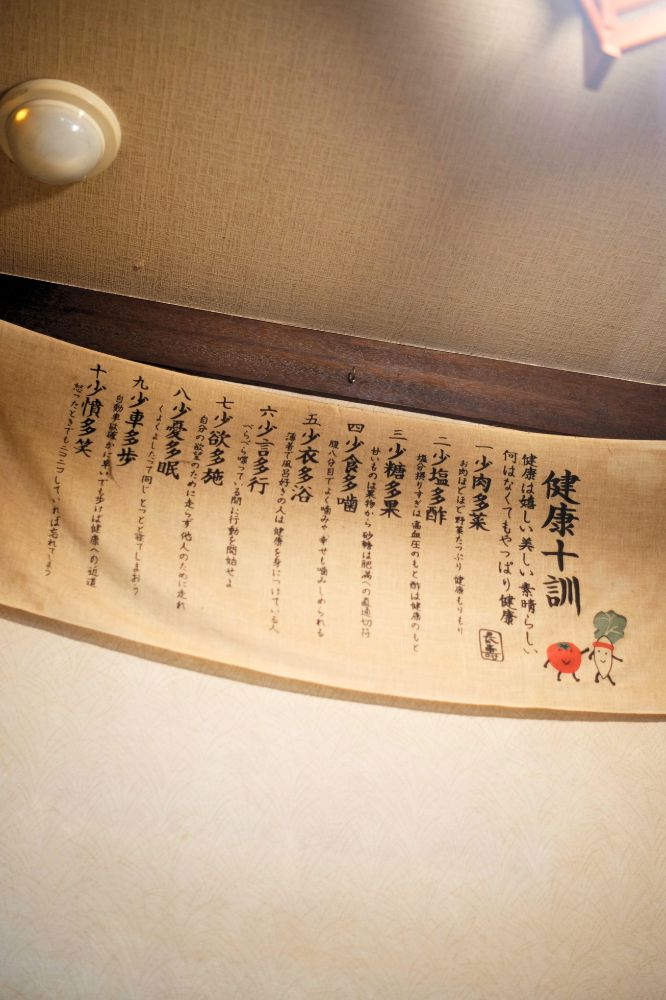 健康十訓
健康は嬉しい美しい素晴らしい
何はなくてもやっぱり健康
長寿
一少肉多菜
お肉ほどほど野菜たっぷり健康もりもり
二少塩多酢
塩分摂りすぎは高血圧のもと酢は健康のもと
三少糖多果
甘いものは果物から砂糖は肥満への直通切符
四少食多噛
腹八分目でよく噛みや幸せも噛みしめられる
五少衣多浴
薄着で風呂好きの人は健康を身につけている人
六少言多行
べらべら喋っている間に行動を開始せよ
七少欲多施
自分の欲望のために走らず他人のために走れ
八少憂多眠
くよくよしたって同じとっとと寝てしまおう
九少車多歩
自動車は確かに早いでも歩けば健康への近道
十少憤多笑
怒ったときでもニコニコしていれば忘れてしまう